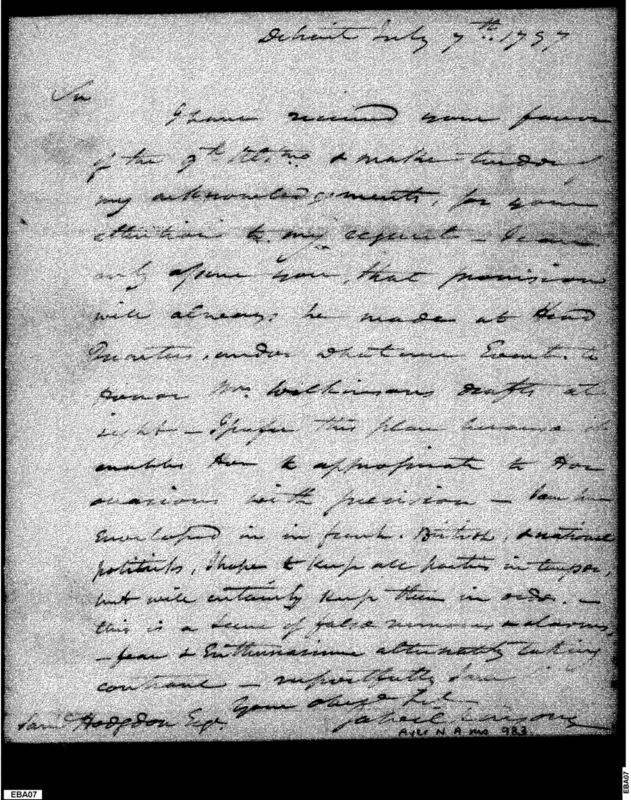 Detroit July 7th. 1797
Sir
I have received your favor
of the 9th Ult.mo & make tender of
my acknowledgements, for your
attention to my request – I can
only assure you, that provision
will always be made at Head
Quarters, under whatever Event. to
Honor Mrs. Wilkinsons drafts at
sight – I prefer this plan because it
enables Her to appropriate to Her
occasions with precision – I am here
Enveloped in in french. British, & national
politicks, I hope to keep all parties in temper,
but will certainly keep them in order. –
this is a scene of false rumours & alarms,
– fear & Enthusiasm alternately taking
command – respectfully I am
Your obeyd. Ser
Sam'l Hodgdon Esqr.
Ja Wilkinson
Ayer N A ms 983
EBA07
EBA07